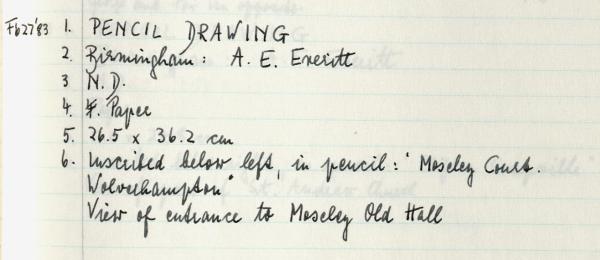 Feb 27 '83 1. PENCIL DRAWING
2. Birmingham: A. E. Everitt
3 N.D.
4. Paper
5. 26.5 x 36.2 cm
6. Inscribed below left, in pencil: "Moseley Court.
Wolverhampton"
View of entrance to Moseley Old Hall